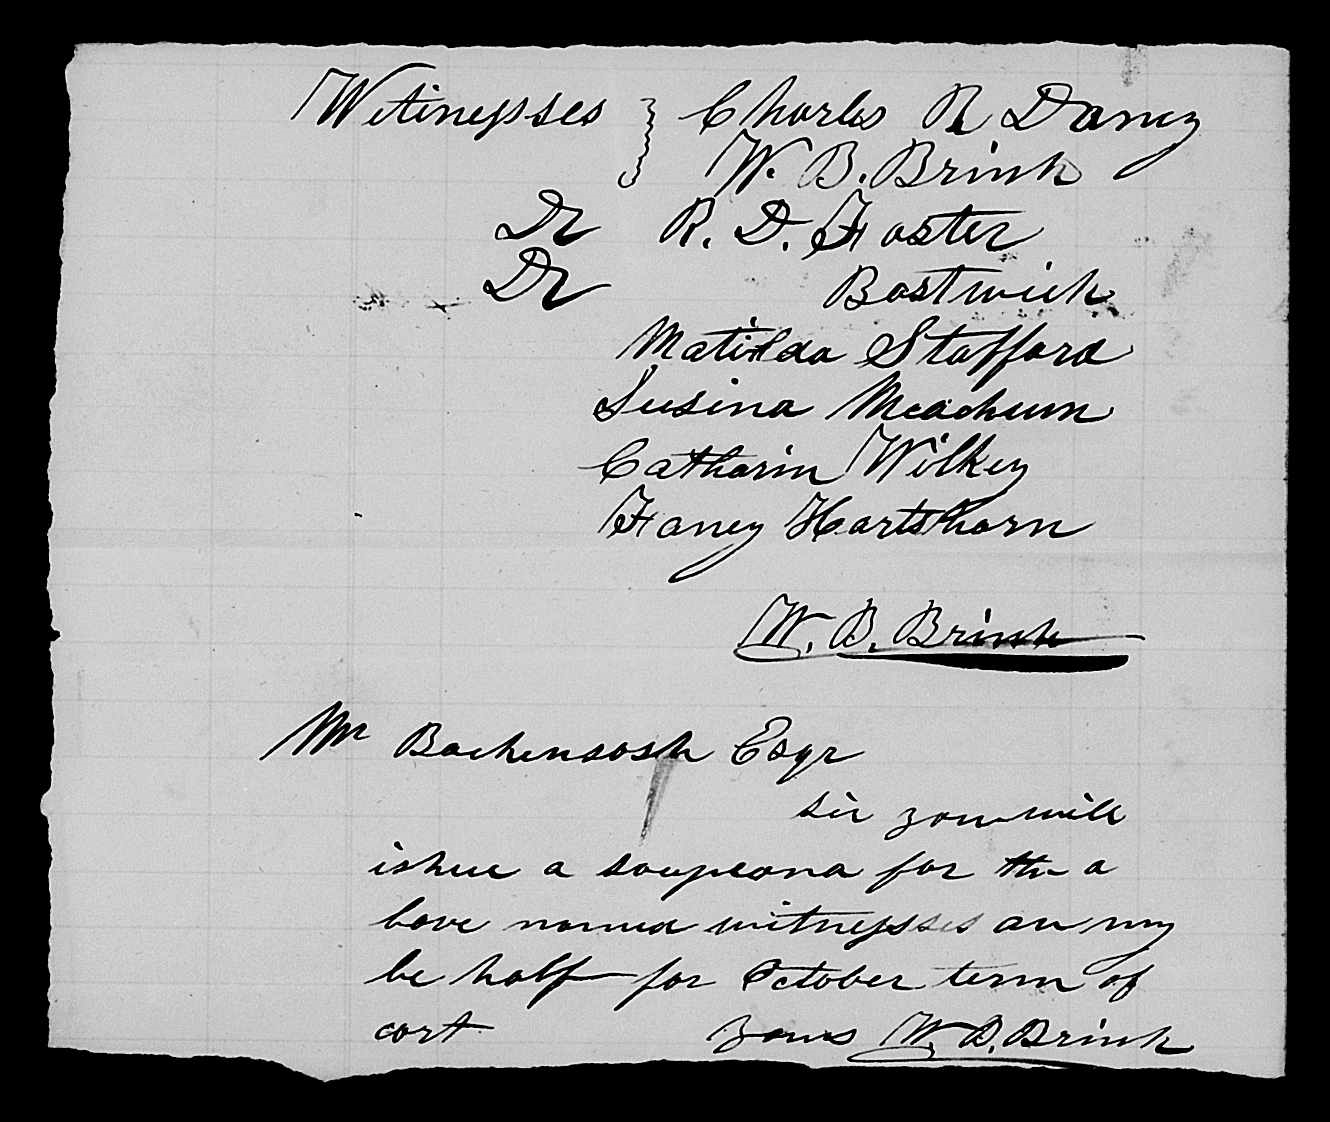 Witinesses } Charles R Dancy
W. B. Brink
Dr R. D. Foster
Dr Bostwick
Matilda Stafford
Susina Meachum
Catharin Wilkey
Faney Hartshorn
W. B. Brink
Mr Backensosh Esqr
Sir you will
ishue a soupeona for the a
bove named witnesses on my
be half for October term of
cort yours W. B. Brink